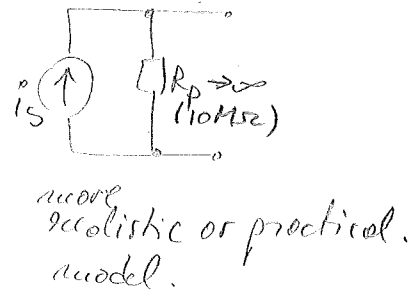 is
Rp → ∞
(10MΩ)
more
realistic or practical.
model.